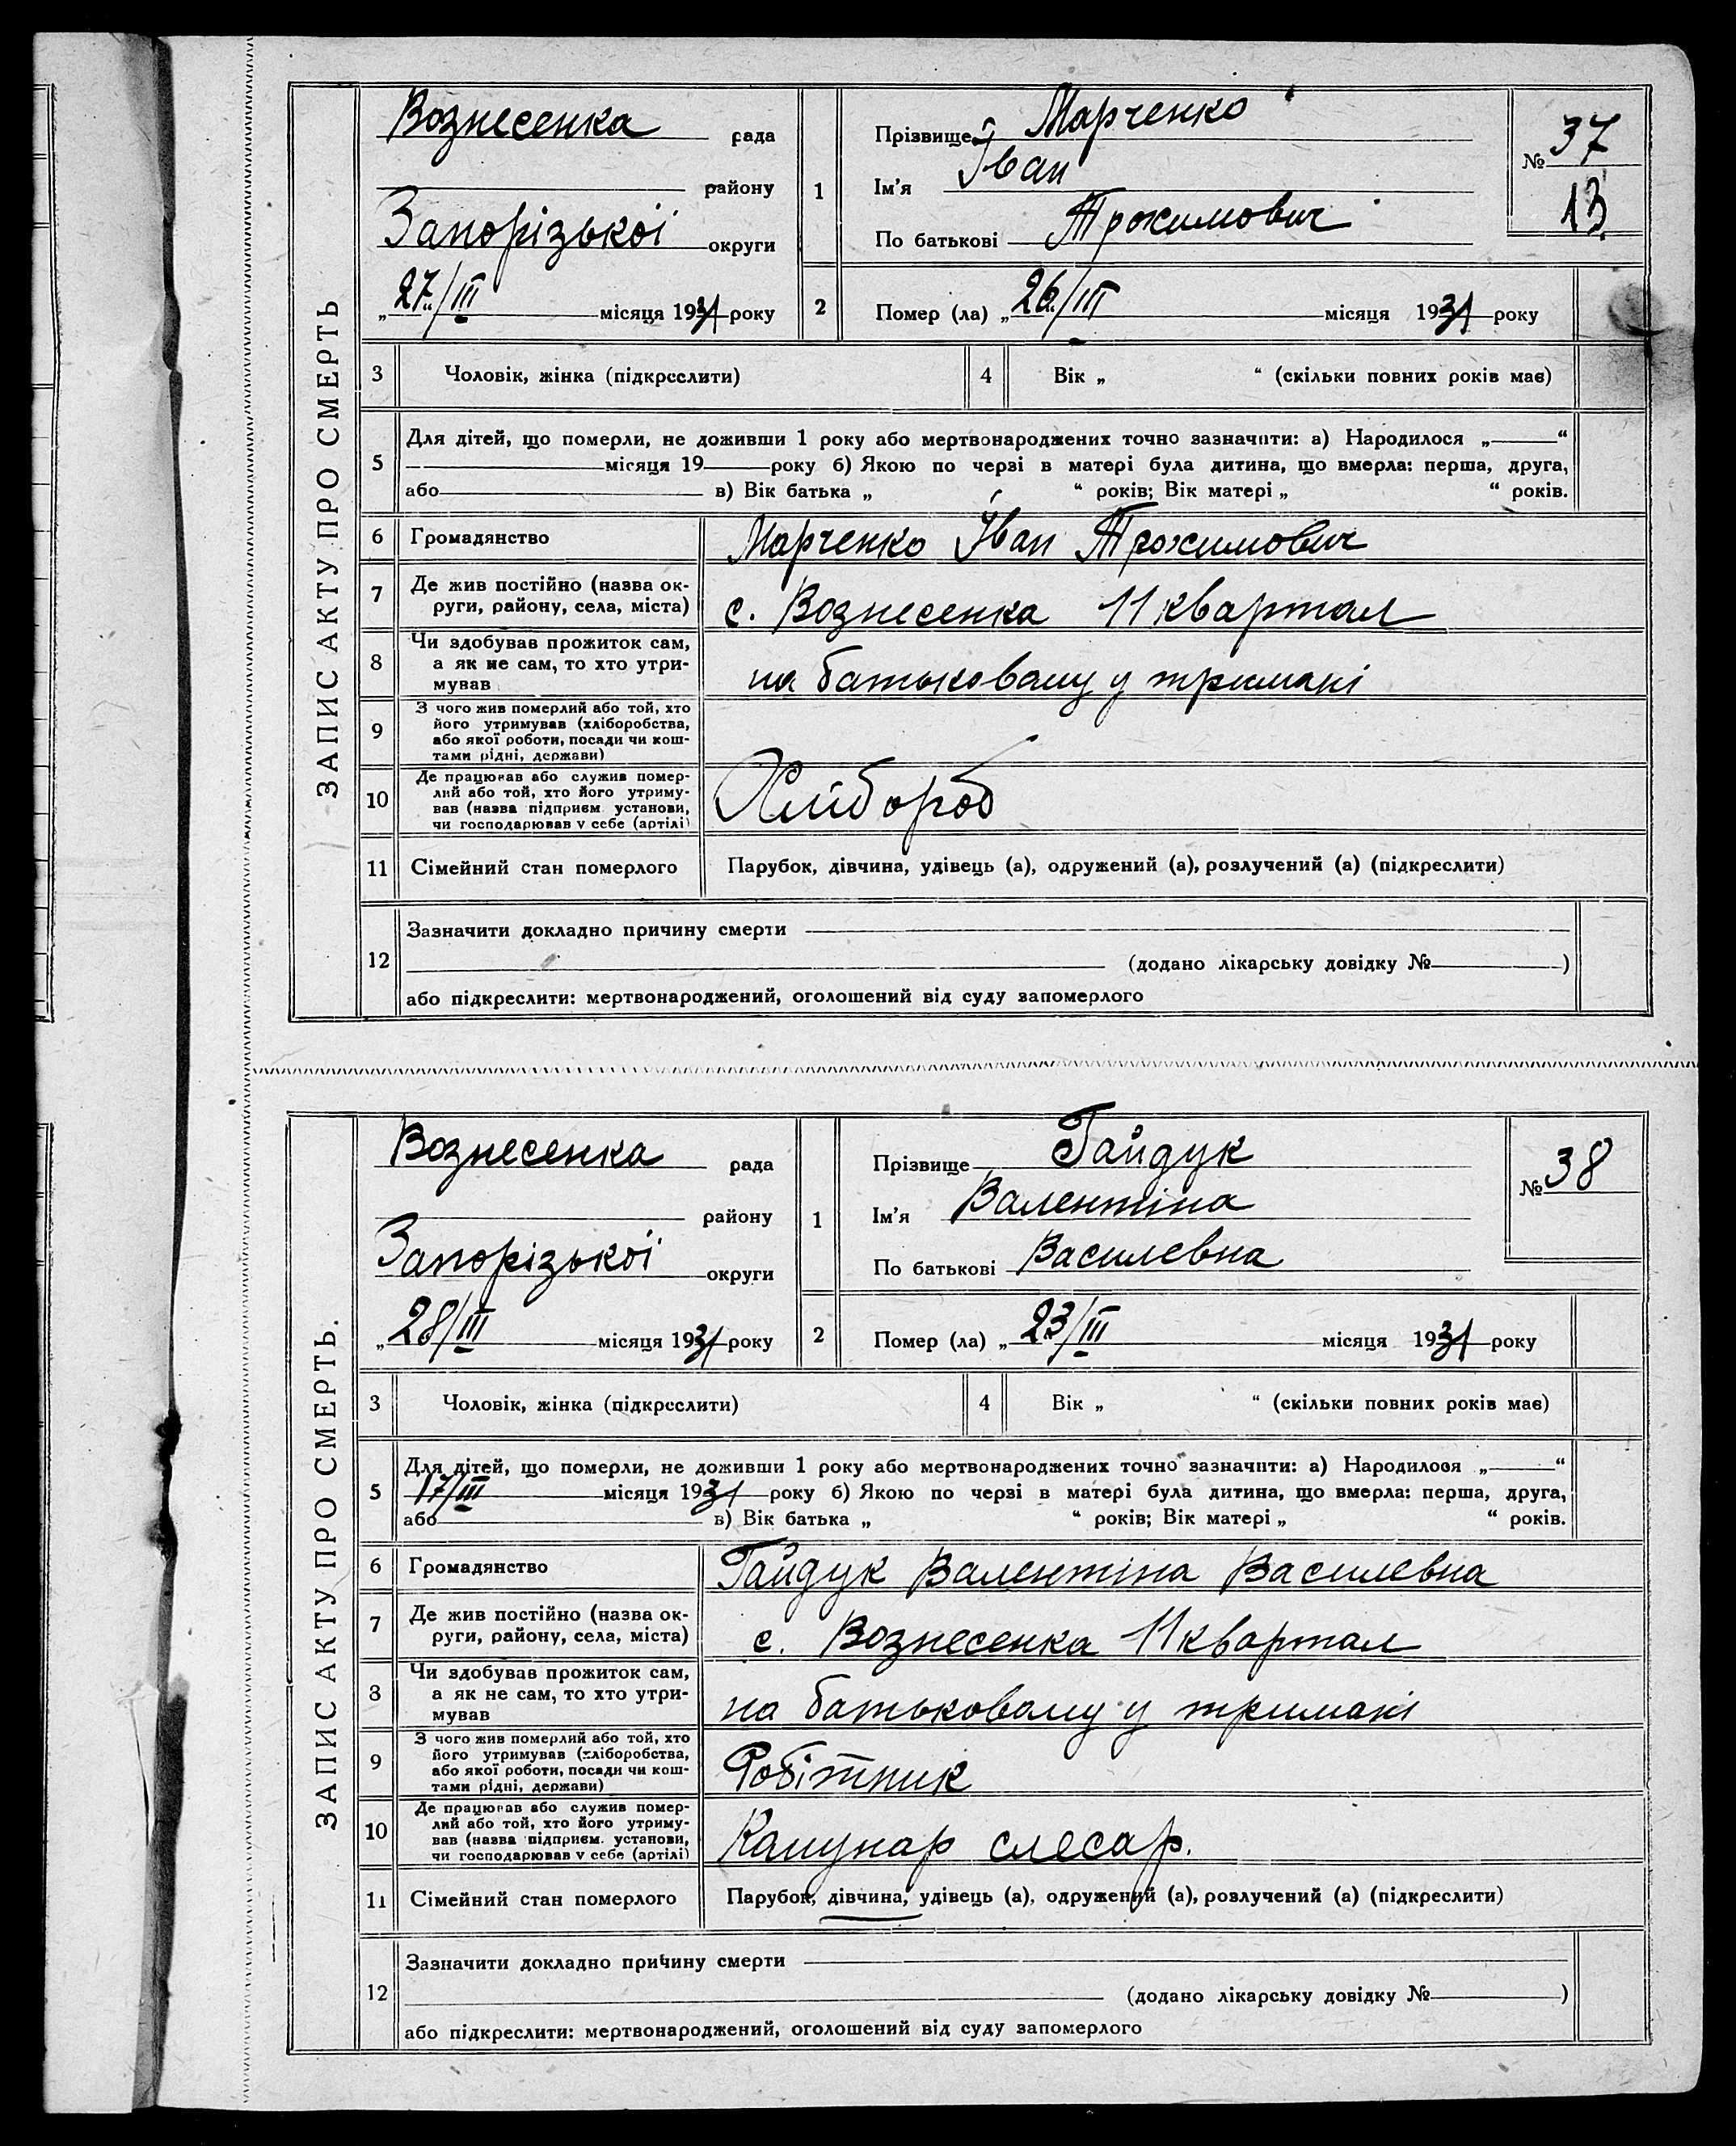 ЗАПИС АКТУ ПРО СМЕРТЬ
Вознесенка рада
району
Запорізької округи
„27/III місяця 1931 року
1
Прізвище Марченко
Ім'я Іван
По батькові Трохимович
№ 37
13
2
Помер (ла) „26/III місяця 1931 року
3 Чоловік, жінка (підкреслити)
4 Вік „ “ (скільки повних років має)
5 Для дітей, що померли, не доживши 1 року або мертвонароджених точно зазначити: а) Народилося „ “
місяця 19 року б) Якою по черзі в матері була дитина, що вмерла: перша, друга,
або в) Вік батька „ “ років; Вік матері „ “ років.
6 Громадянство Марченко Іван Трохимович
7 Де жив постійно (назва ок-
руги, району, села, міста) с. Вознесенка 11 квартал
8 Чи здобував прожиток сам,
а як не сам, то хто утри-
мував на батьковому у тримані
9 З чого жив померлий або той, хто
його утримував (хліборобства,
або якої роботи, посади чи кош-
тами рідні, держави)
10 Де працював або служив помер-
лий або той, хто його утриму-
вав (назва підприєм. установи,
чи господарював у себе (артілі) Хлібороб
11 Сімейний стан померлого Парубок, дівчина, удівець (а), одружений (а), розлучений (а) (підкреслити)
12 Зазначити докладно причину смерти
(додано лікарську довідку № )
або підкреслити: мертвонароджений, оголошений від суду запомерлого
ЗАПИС АКТУ ПРО СМЕРТЬ.
Вознесенка рада
району
Запорізької округи
„28/III місяця 1931 року
1
Прізвище Гайдук
Ім'я Валентіна
По батькові Василевна
№ 38
2
Помер (ла) „23/III місяця 1931 року
3 Чоловік, жінка (підкреслити)
4 Вік „ “ (скільки повних років має)
5 Для дітей, що померли, не доживши 1 року або мертвонароджених точно зазначити: а) Народилося „ “
17/III місяця 1931 року б) Якою по черзі в матері була дитина, що вмерла: перша, друга,
або в) Вік батька „ “ років; Вік матері „ “ років.
6 Громадянство Гайдук Валентіна Василевна
7 Де жив постійно (назва ок-
руги, району, села, міста) с. Вознесенка 11 квартал
8 Чи здобував прожиток сам,
а як не сам, то хто утри-
мував на батьковому у тримані
9 З чого жив померлий або той, хто
його утримував (хліборобства,
або якої роботи, посади чи кош-
тами рідні, держави) Робітник
10 Де працював або служив помер-
лий або той, хто його утриму-
вав (назва підприєм. установи,
чи господарював у себе (артілі) слесар.
11 Сімейний стан померлого Парубок, дівчина, удівець (а), одружений (а), розлучений (а) (підкреслити)
12 Зазначити докладно причину смерти
(додано лікарську довідку № )
або підкреслити: мертвонароджений, оголошений від суду запомерлого